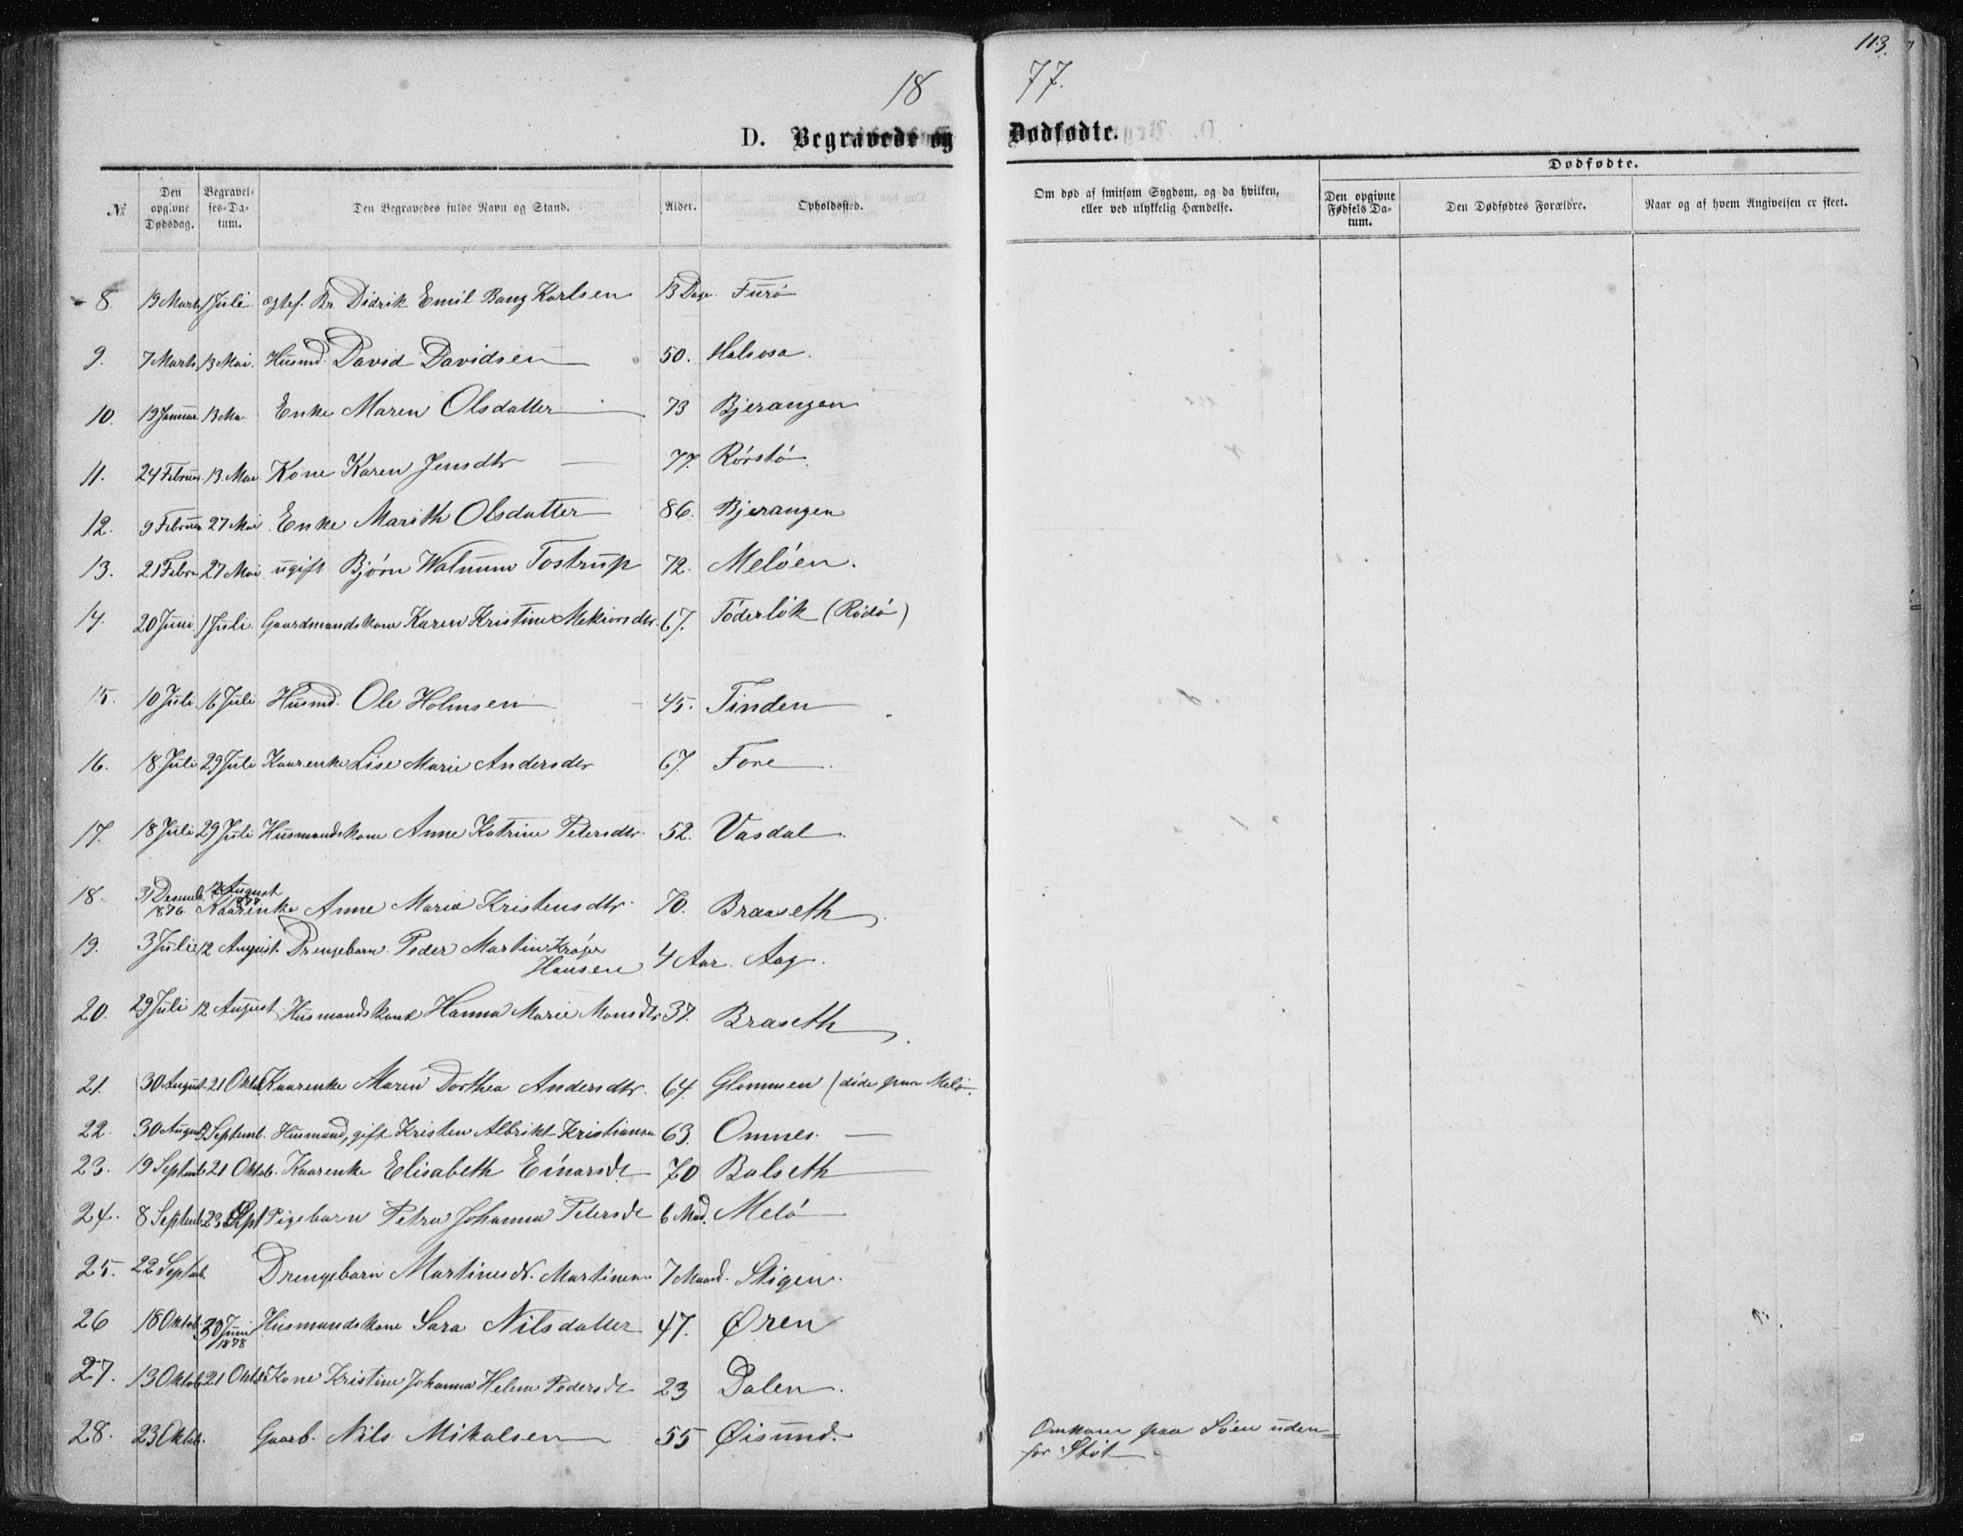 113.
18 77.
D. Begravede og Dødfødte.
Dødfødte.
№ Den opgivne Dødsdag. Begravelses-Datum. Den Begravedes fulde Navn og Stand. Alder. Opholdssted. Om død af smitsom Sygdom, og da hvilken, eller ved ulykkelig Hændelse. Den opgivne Fødsels Datum. Den Dødfødtes Forældre. Naar og af hvem Angivelsen er skeet.
8. 19 Marts 1 Juli ægtef. Br. Didrik Emil Bang Karlsen 13 Dage. Furö
9. 7 Marts 13 Mai. Husmd. David Davidsen 50. Halsosa.
10. 19 Januar 13 Ma Enke Maren Olsdatter 73 Bjerangen
11. 24 Februar. 13. Mai Kone Karen Jensdtr 77. Rörstö.
12. 9 Februar 27 Mai Enke Marith Olsdatter 86. Bjerangen
13. 21 Febru 27 Mai ugift Björn Walnum Tostrup 72. Melöen.
14. 20 Juni. 1 Juli. Gaardmandskone Karen Kristine Mekiorsdtr. 67. Töderlök (Rödö)
15. 10 Juli. 16 Juli Husmd. Ole Holmsen 45. Tinden
16. 18. Juli 29 Juli Kaarenke Lise Marie Andersdtr 67. Fore
17. 18 Juli 29 Juli Husmandskone Anne Katrine Petersdtr. 52. Vasdal
18. 31 Desemb. 1876 12 August 1877 Kaarenke Anne Maria Kristensdtr. 70. Braaseth
19. 3 Juli 12 August. Drengebarn Peder Martin Kröger
Hansen 4 Aar. Aag.
20. 29 Juli 12 August Husmandskone Hanna Marie Monsdtr 37. Braseth
21. 30 August 21 Oktob. Kaarenke Maren Dorthea Andersdtr. 64. Glommen (döde paa Melö.
22. 30 August Septemb. Husmand, gift Kristen Albrikt Kristiansen 63. Omnes.
23. 19 Septemb 21 Oktob. Kaarenke Elisabeth Einarsdt 70 Balseth
24. 8 Septemb 23 Sept Pigebarn Petra Johanna Petersdt 6 Mad. Melö
25. 22 Septemb. Drengebarn Martinus Martinsen 7 Maand. Stigen.
26 18 Oktob. 30 Juni 1878 Husmandskone Sara Nilsdatter 47. Øren
27. 13 Oktob 21 Oktob Kone Kristine Johanna Helene Pedersdt 23 Dalen.
28. 23 Oktob. Gaarb. Nils Mikalsen 55 Øisund. Omkom paa Söen uden=
for Stöt